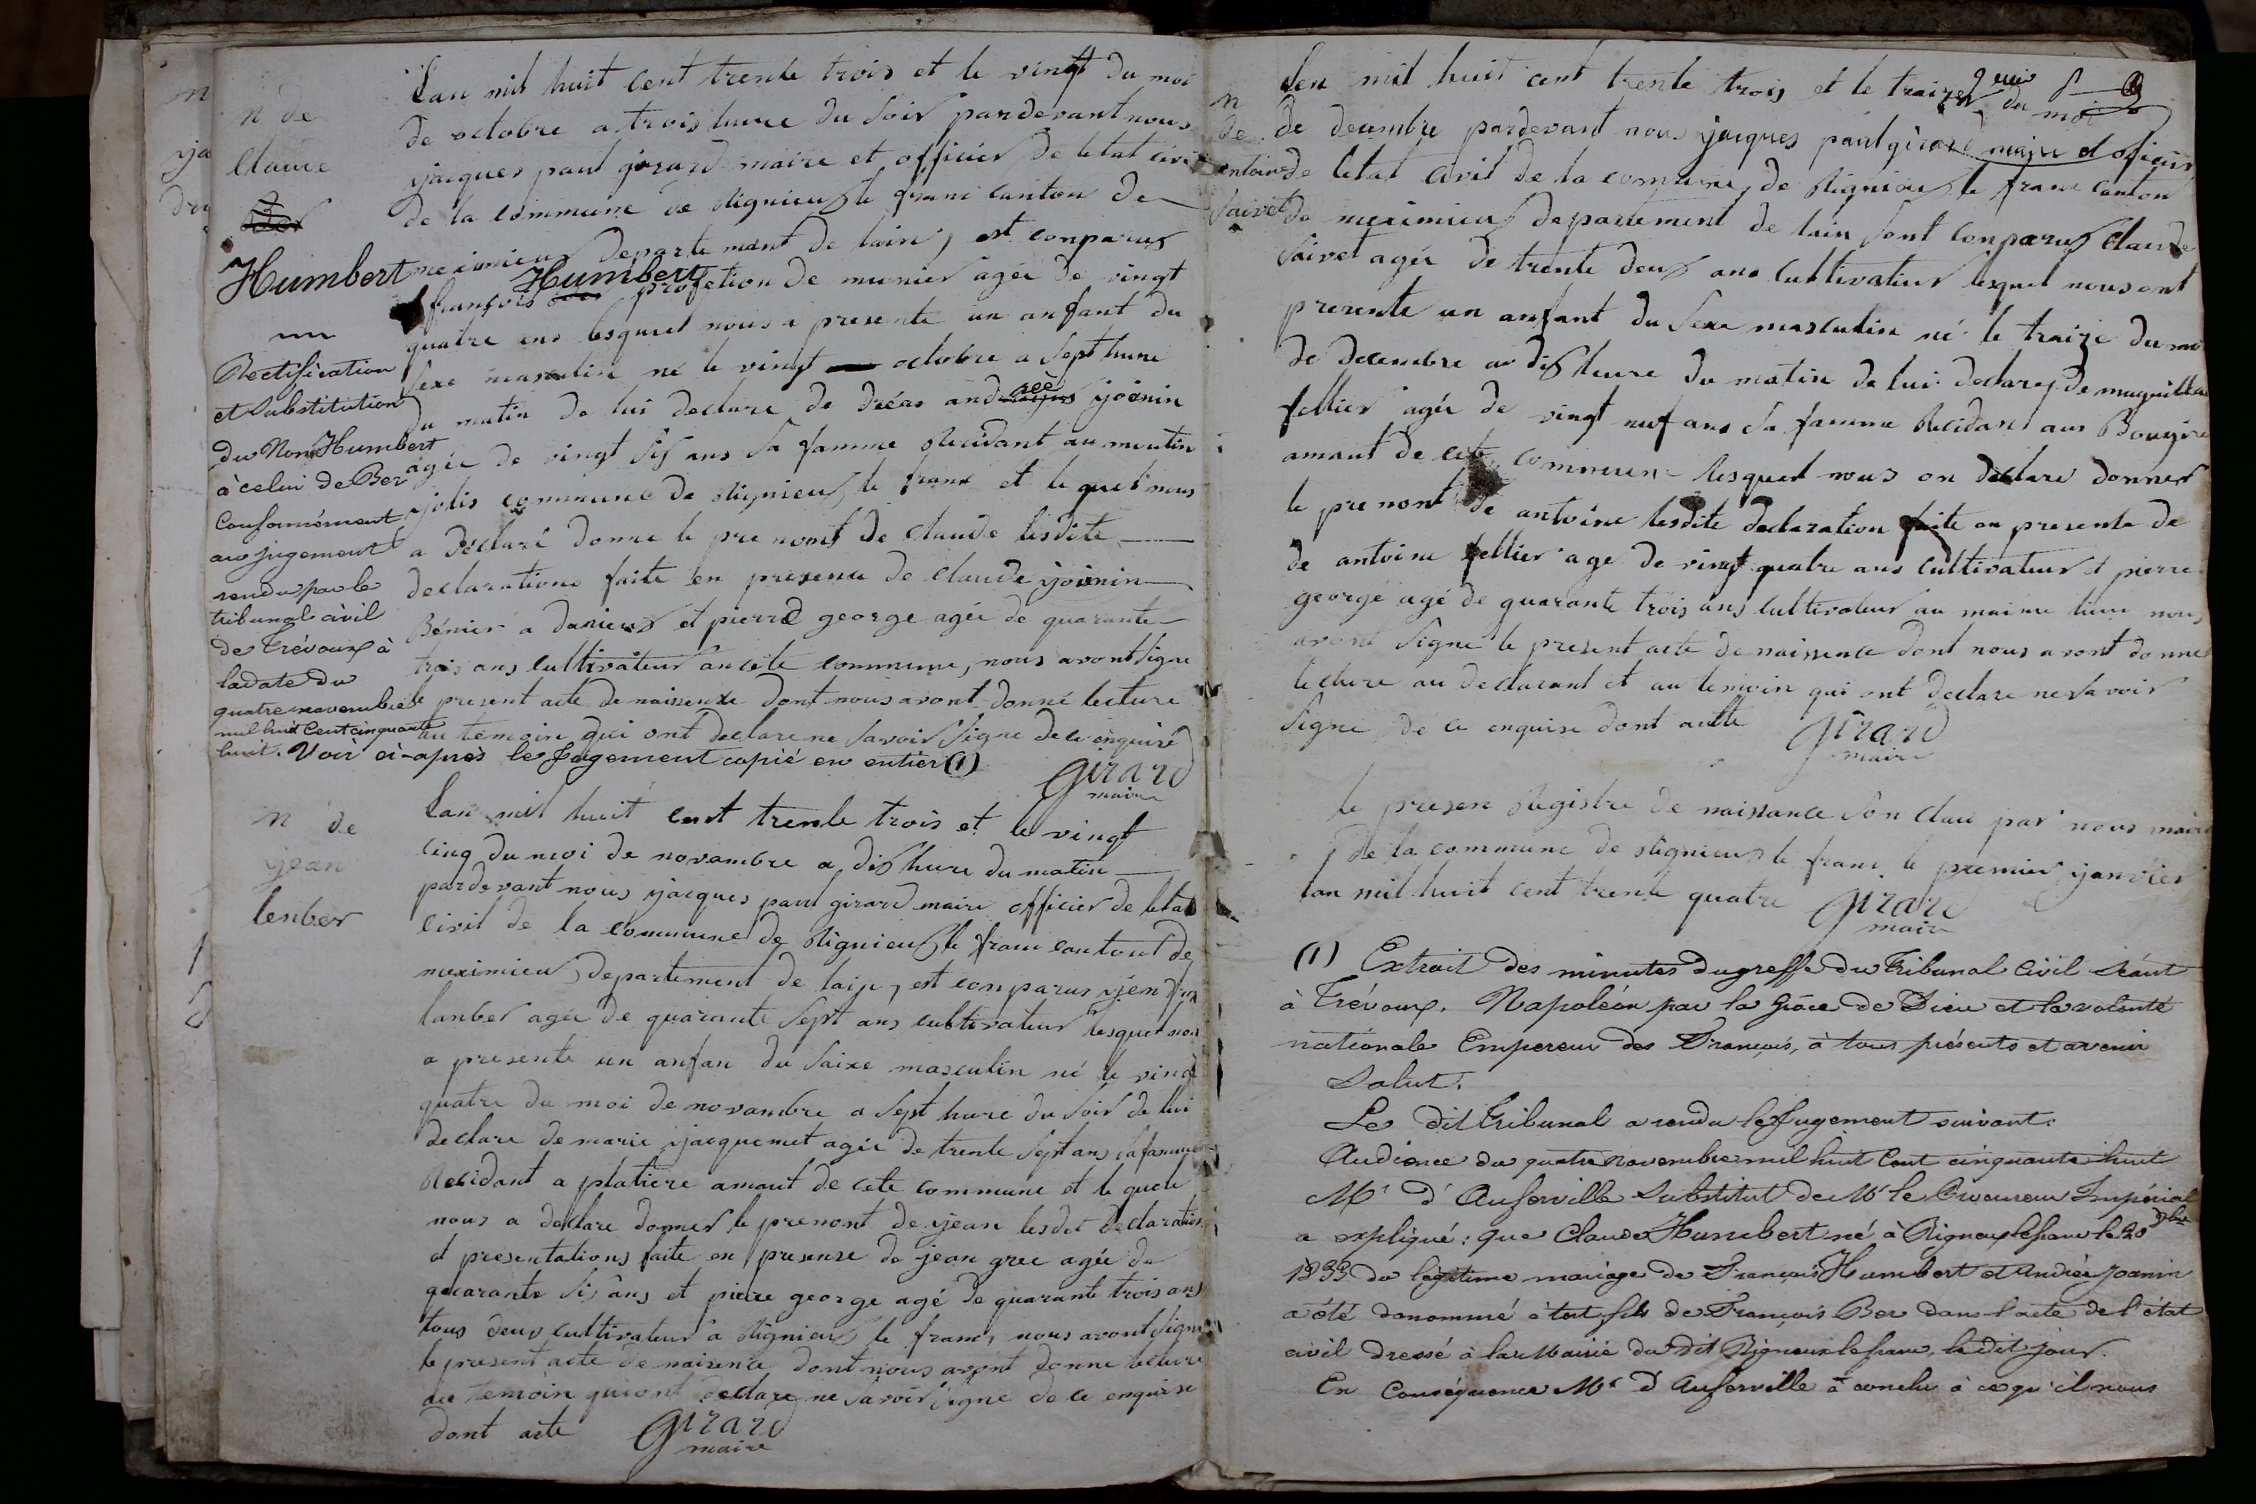 n de
claude
Humbert
Rectification
et Substitution
du Nom Humbert
à celui de Ber
Conformément
au jugement
rendu par le
tribunal civil
de Trévoux à
la date du
quatre novembre
mil huit Cent cinquante
huit. Voir ci-après le Jugement copié en entier (1)
Lan mil huit cent trente trois et le vingt du moi
de octobre a trois hure du soir pardevant nous
jacques paul girard maire et officier de letat civil
de la commune de Rignieux le franc canton de
meximieux departemant de lain, est conparus
françois Humbert profetion de munier agée de vingt
quatre ens lesquel nous a presente un anfant du
sexe masculin né le vingt octobre a sept hure
du matin de lui declare de drée andrée joinin
agée de vingt sis ans sa famme Recidant au moulin
jolis commune de Rignieux le franc et le quel nous
a declaré donne le pre nomt de claude lesdite
declarations faite en presence de claude joinin
Bénier a danieux et pierre george agée de quarante
trois ans cultivateur en cete commune, nous avont signe
le present acte de naissense dont nous avont donné lecture
au temoin qui ont declare ne savoir signe de ce enquire
girard
maire
n de
jean
lenber
Lan mil huit cent trente trois et le vingt
cinq du moi de novambre a dis hure du matin
pardevant nous jacques paul girard maire officier de letat
civil de la commune de Rignieux le franc cantont de
meximieux departement de lain, est conparus jean
lanber agée de quarante sept ans cultivateur lesquel nous
a presente un anfan du saixe masculin né le vingt
quatre du moi de novambre a sept hure du soir de lui
declare de marie jacquemet agée de trente sept ans sa famme
Recidant a platiere amant de cete commune et le quele
nous a declare donner le prenont de jean lesdet declaration
et presentations faite en presense de jean grec agée de
quarante sis ans et pierre george agé de quarante trois ans
tous deux cultivateur a Rignieux le franc, nous avont signe
le present acte de naisence dont nous avont donne lecture
au temoin qui ont declare ne savoir signe de ce enquise
dont acte girard
maire
n
de
antoine
saivet
Len mil huit cent trente trois et le traizer du moi
de decembre pardevant nous jacques paul girard maire et oficier
de letat civil de la commune de Rignieux le franc canton
de meximieux departement de lain sont conparus claude
saivet agée de trente deux ans cultivateur lesquel nous ont
presente un anfant du sexe masculin né le traize du moi
de decembre a dis heure du matin de lui declare de
fellier agée de vingt neuf ans sa famme Recidant aux
amant de cete commune lesquel nous on declare donner
le prenont de antoine lesdite declaration faite an presente de
de antoine fellier age de vingt quatre ans cultivateur et pierre
george agé de quarante trois ans cultivateur au maime lieu nous
avont signe le present acte de naissence dont nous avont donné
lecture au declarant et au temoin qui ont declare ne savoir
signe de ce enquise dont acte girard
maire
le presen Registre de naissance son claue par nous maire
de la commune de Rignieux le franc le premier janvier
lan mil huit cent trente quatre girard
maire
(1) Extrait des minutes du greffe du Tribunal Civil Séant
à Trévoux. Napoléon par la grâce de Dieu et la volonté
nationale Empereur des Français, à tous présents et avenir
Salut.
Le dit Tribunal a rendu le Jugement suivant.
Audience du quatre novembre mil huit Cent cinquante huit
Mr d'Auferville Substitut de Mr le Procureur Impérial
a expliqué: que Claude Humbert né à Rigneux le franc le 20 8bre
1833 du légitime mariage de François Humbert et Andrée Joanin
a été dénommé à tort fils de François Ber dans l'acte de l'état
civil dressé à la Mairie du dit Rigneux le franc, le dit jour.
En Conséquence Mr d'Auferville a conclu à ce qu'il nous